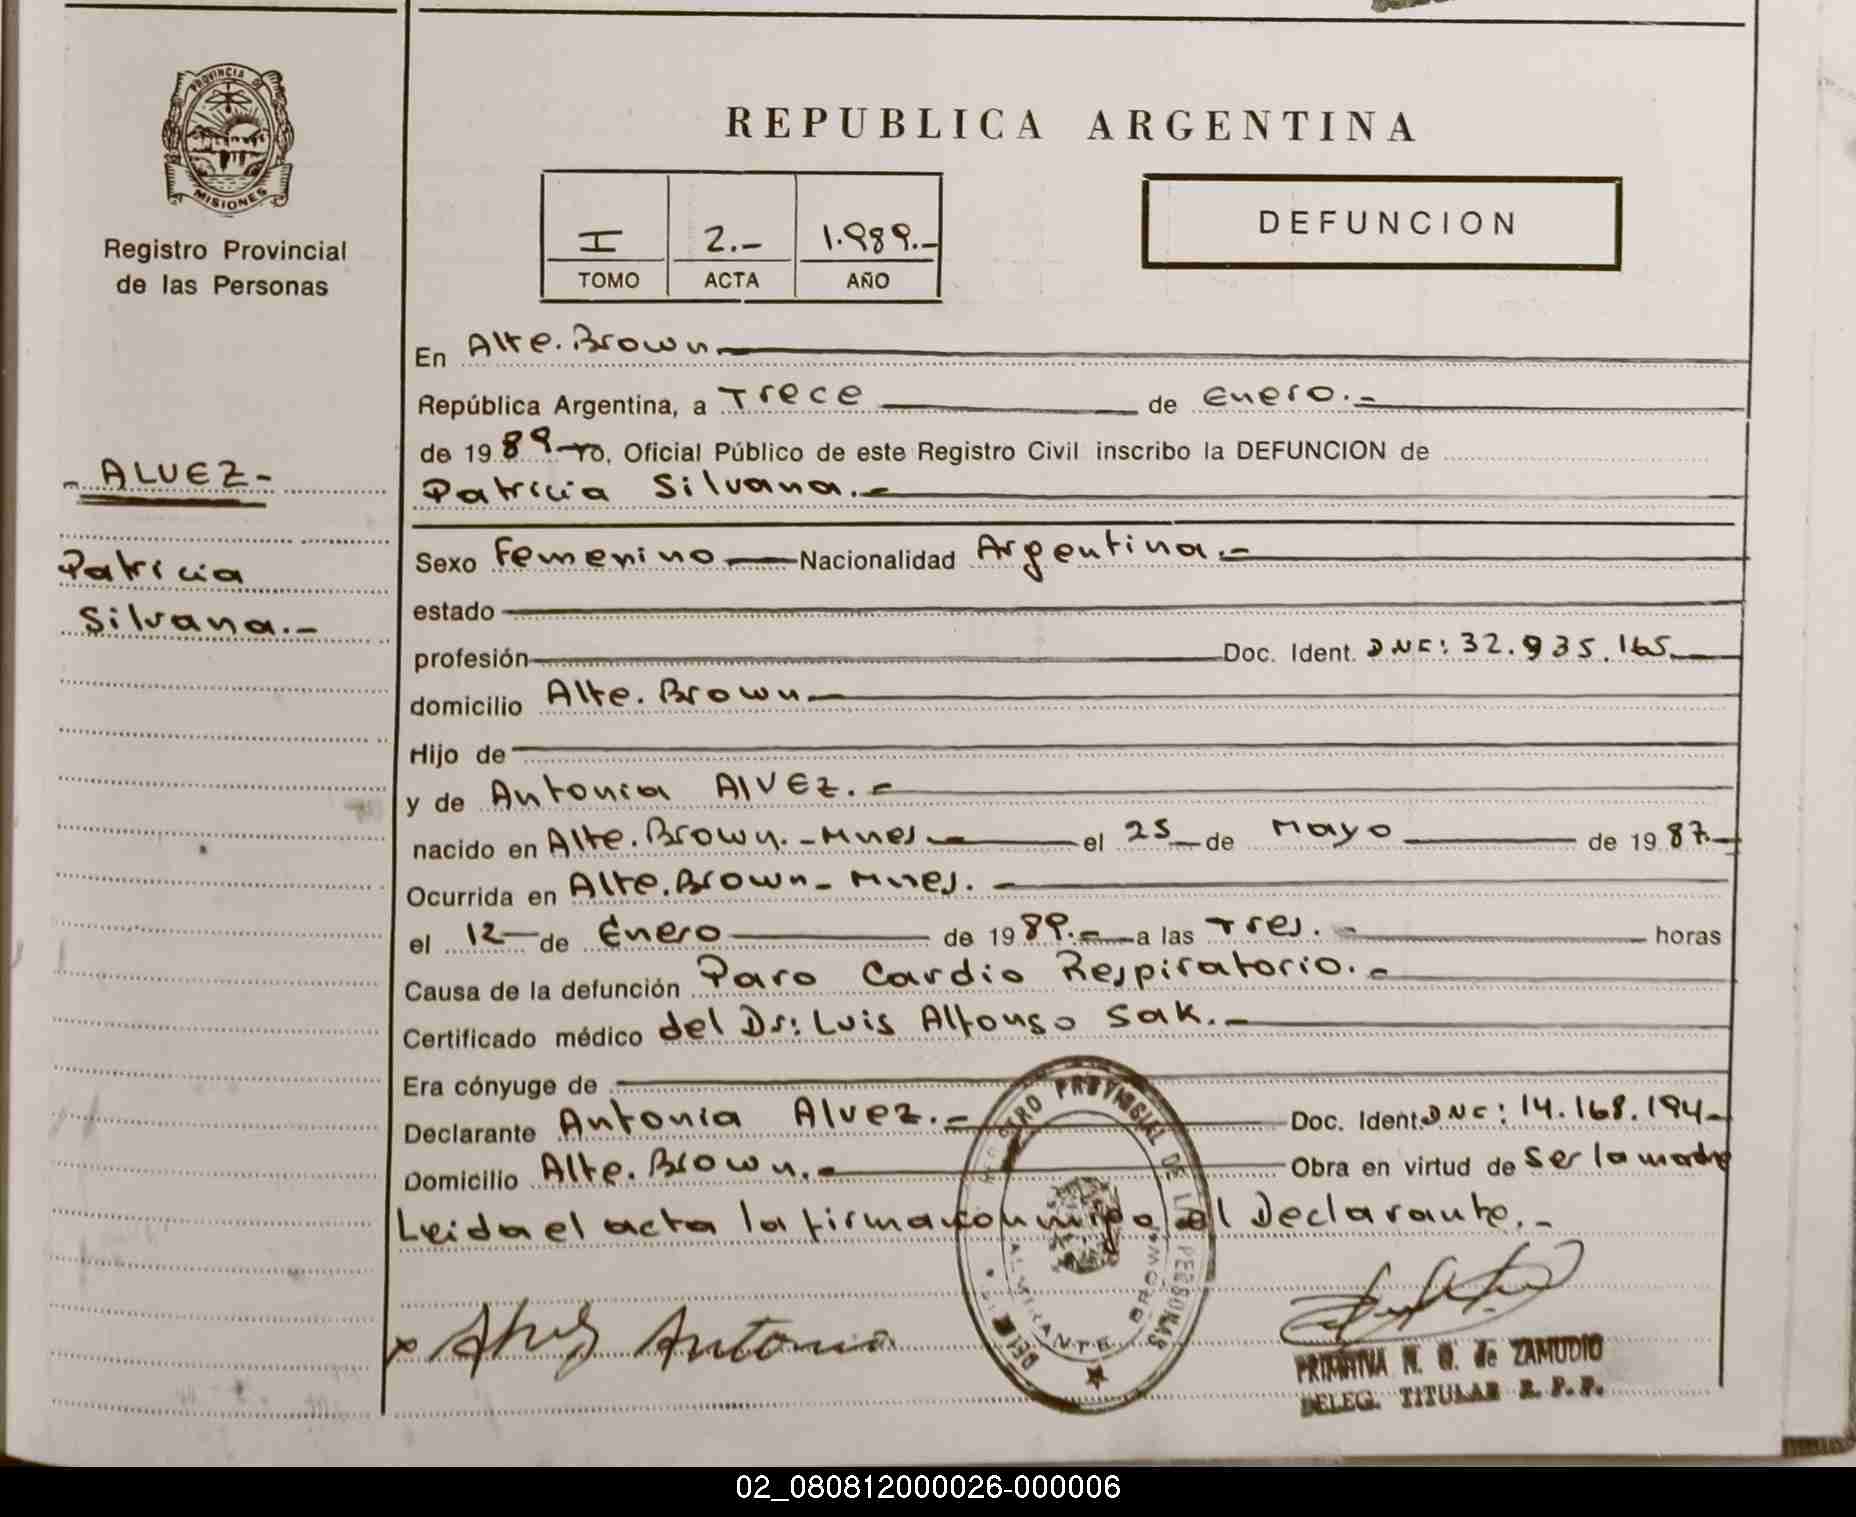 PROVINCIA D
MISIONES
Registro Provincial
de las Personas
- ALVEZ -
Patricia
Silvana.-
REPUBLICA ARGENTINA
I 2.- 1.989.-
TOMO ACTA AÑO
DEFUNCION
En Alte. Brown
República Argentina, a Trece de Enero.-
de 19 89 yo, Oficial Público de este Registro Civil inscribo la DEFUNCION de
Patricia Silvana.-
Sexo Femenino Nacionalidad Argentina.-
estado
profesión Doc. Ident. DNI: 32.935.165
domicilio Alte. Brown
Hijo de
y de Antonia Alvez.-
nacido en Alte. Brown.-Mnes.- el 25 de Mayo de 19 87.-
Ocurrida en Alte. Brown - Mnes.-
el 12 de Enero de 19 89.- a las Tres.- horas
Causa de la defunción Paro Cardio Respiratorio.-
Certificado médico del Dr: Luis Alfonso Sak.-
Era cónyuge de
Declarante Antonia Alvez.- Doc. Ident. DNI: 14.168.194-
Domicilio Alte. Brown.- Obra en virtud de ser la madre
Leida el acta la firma conmigo el Declarante.-
x Alvez Antonia
REGISTRO PROVINCIAL DE LAS PERSONAS
ALMIRANTE BROWN
PRIMITIVA N. G. de ZAMUDIO
DELEG. TITULAR R. P. P.
02_080812000026-000006